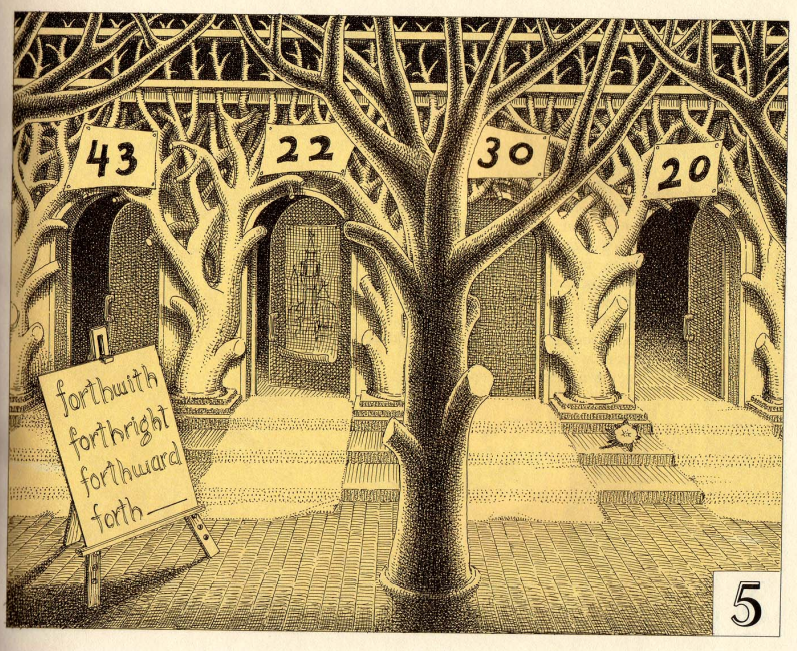 43
22
30
20
forthwith
forthright
forthward
forth
5